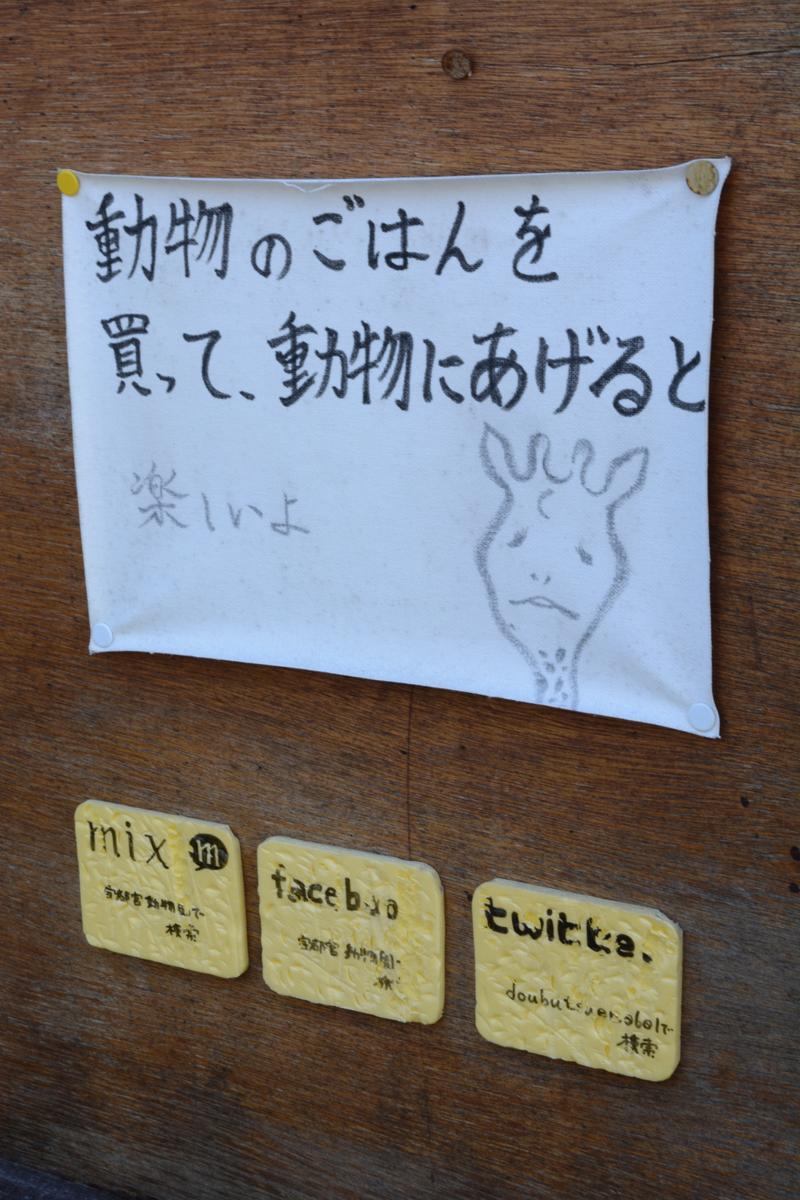 動物のごはんを
買って、動物にあげると
楽しいよ
mix m
宇都宮動物園で
検索
faceb
宇都宮 動物園
twitte.
検索